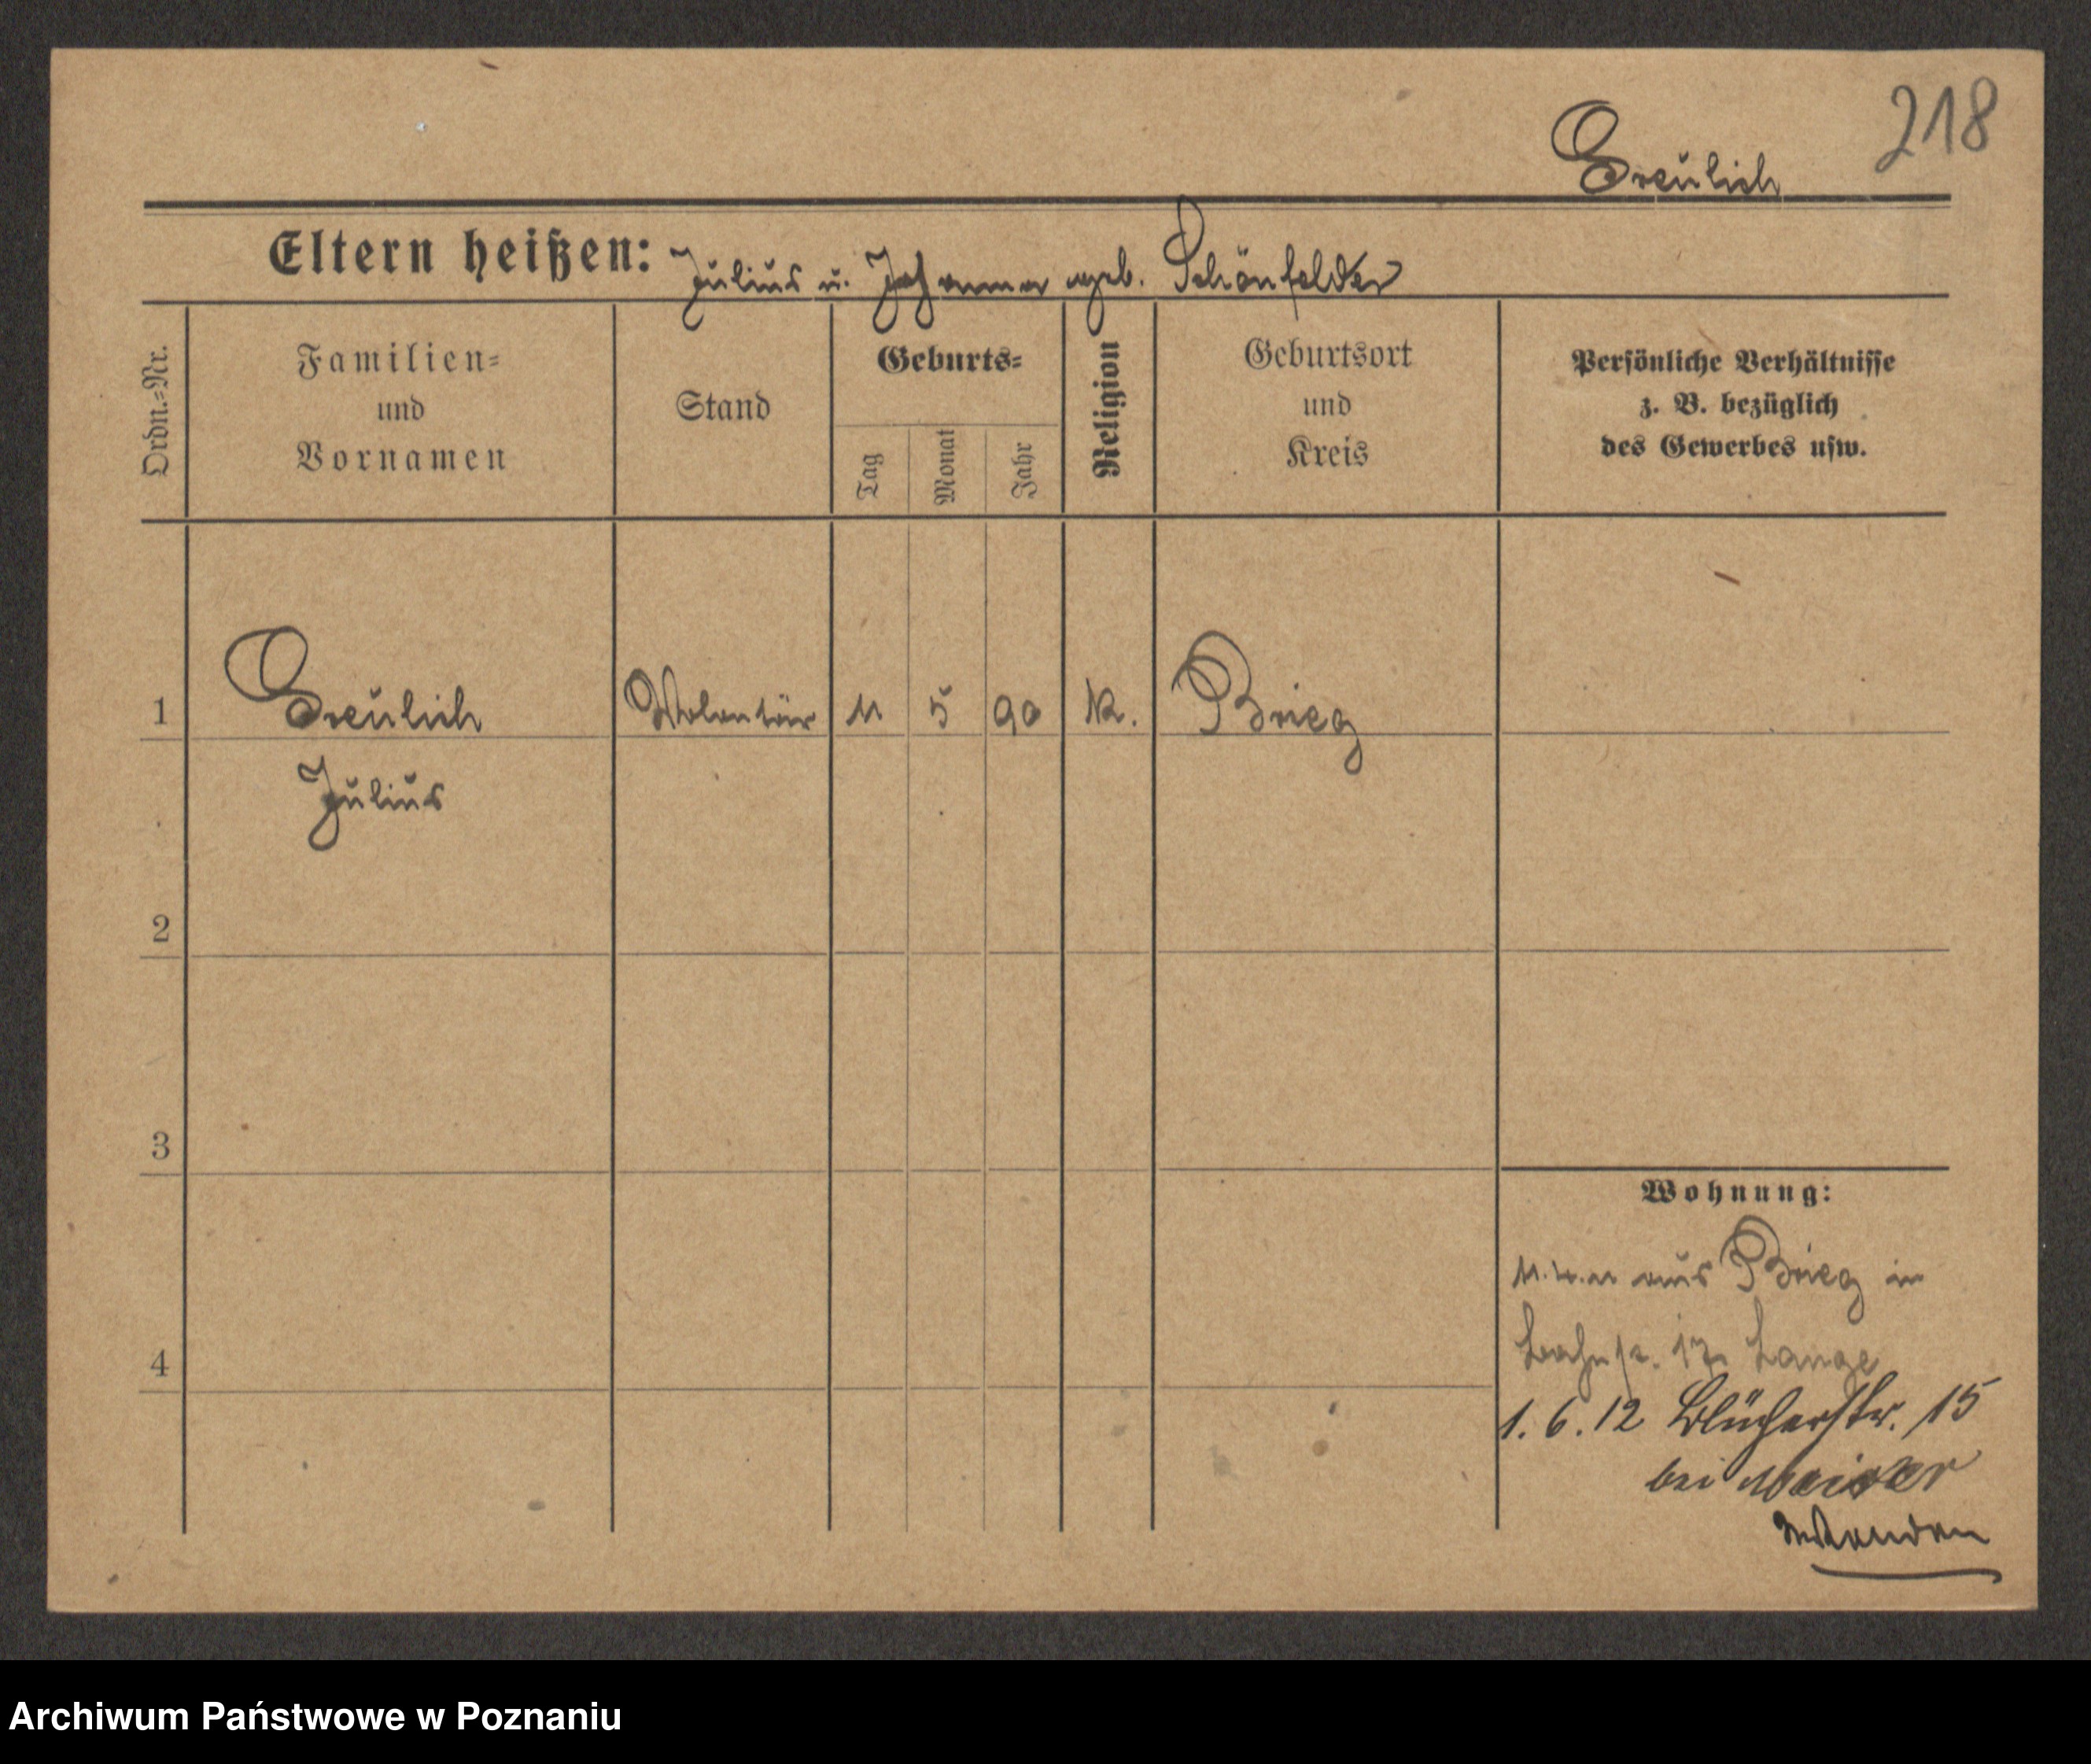 218
Greulich
Eltern heißen: Julius u. Johanna geb. Schönfelder
Ordn.-Nr.
Familien-
und
Vornamen
Stand
Geburts-
Tag
Monat
Jahr
Religion
Geburtsort
und
Kreis
Persönliche Verhältnisse
z. B. bezüglich
des Gewerbes usw.
1 Greulich Volontär 11 5 90 K. Brieg
Julius
2
3
4
Wohnung:
aus Brieg in
17 Lange
1. 6. 12 Blücherstr. 15
bei
Archiwum Państwowe w Poznaniu